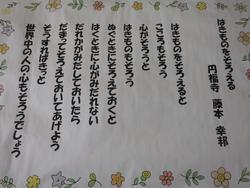 はきものをそろえる
円福寺 藤本 幸邦
はきものをそろえると
こころもそろう
心がそろうと
はきものもそろう
ぬぐときにそろえておくと
はくときに心がみだれない
だれかがみだしておいたら
だまってそろえておいてあげよう
そうすればきっと
世界中の人の心もそろうでしょう